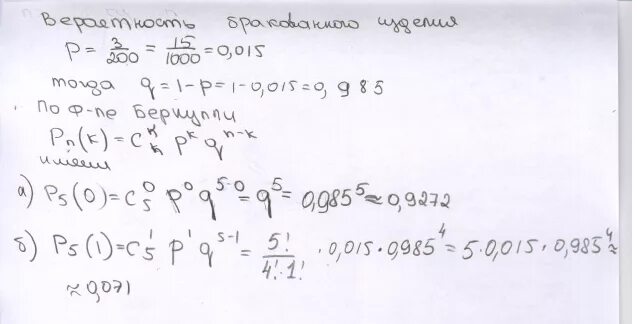 Вероятность бракованного изделия
p = 3/200 = 15/1000 = 0,015
тогда q = 1 - p = 1 - 0,015 = 0,985
По ф-ле Бернулли
Pₙ(k) = Cₙᵏ pᵏ qⁿ⁻ᵏ
имеем
а) P₅(0) = C₅⁰ p⁰ q⁵⁻⁰ = q⁵ = 0,985⁵ ≈ 0,9272
б) P₅(1) = C₅¹ p¹ q⁵⁻¹ = 5!/(4!·1!) · 0,015 · 0,985⁴ = 5 · 0,015 · 0,985⁴ ≈
≈ 0,071